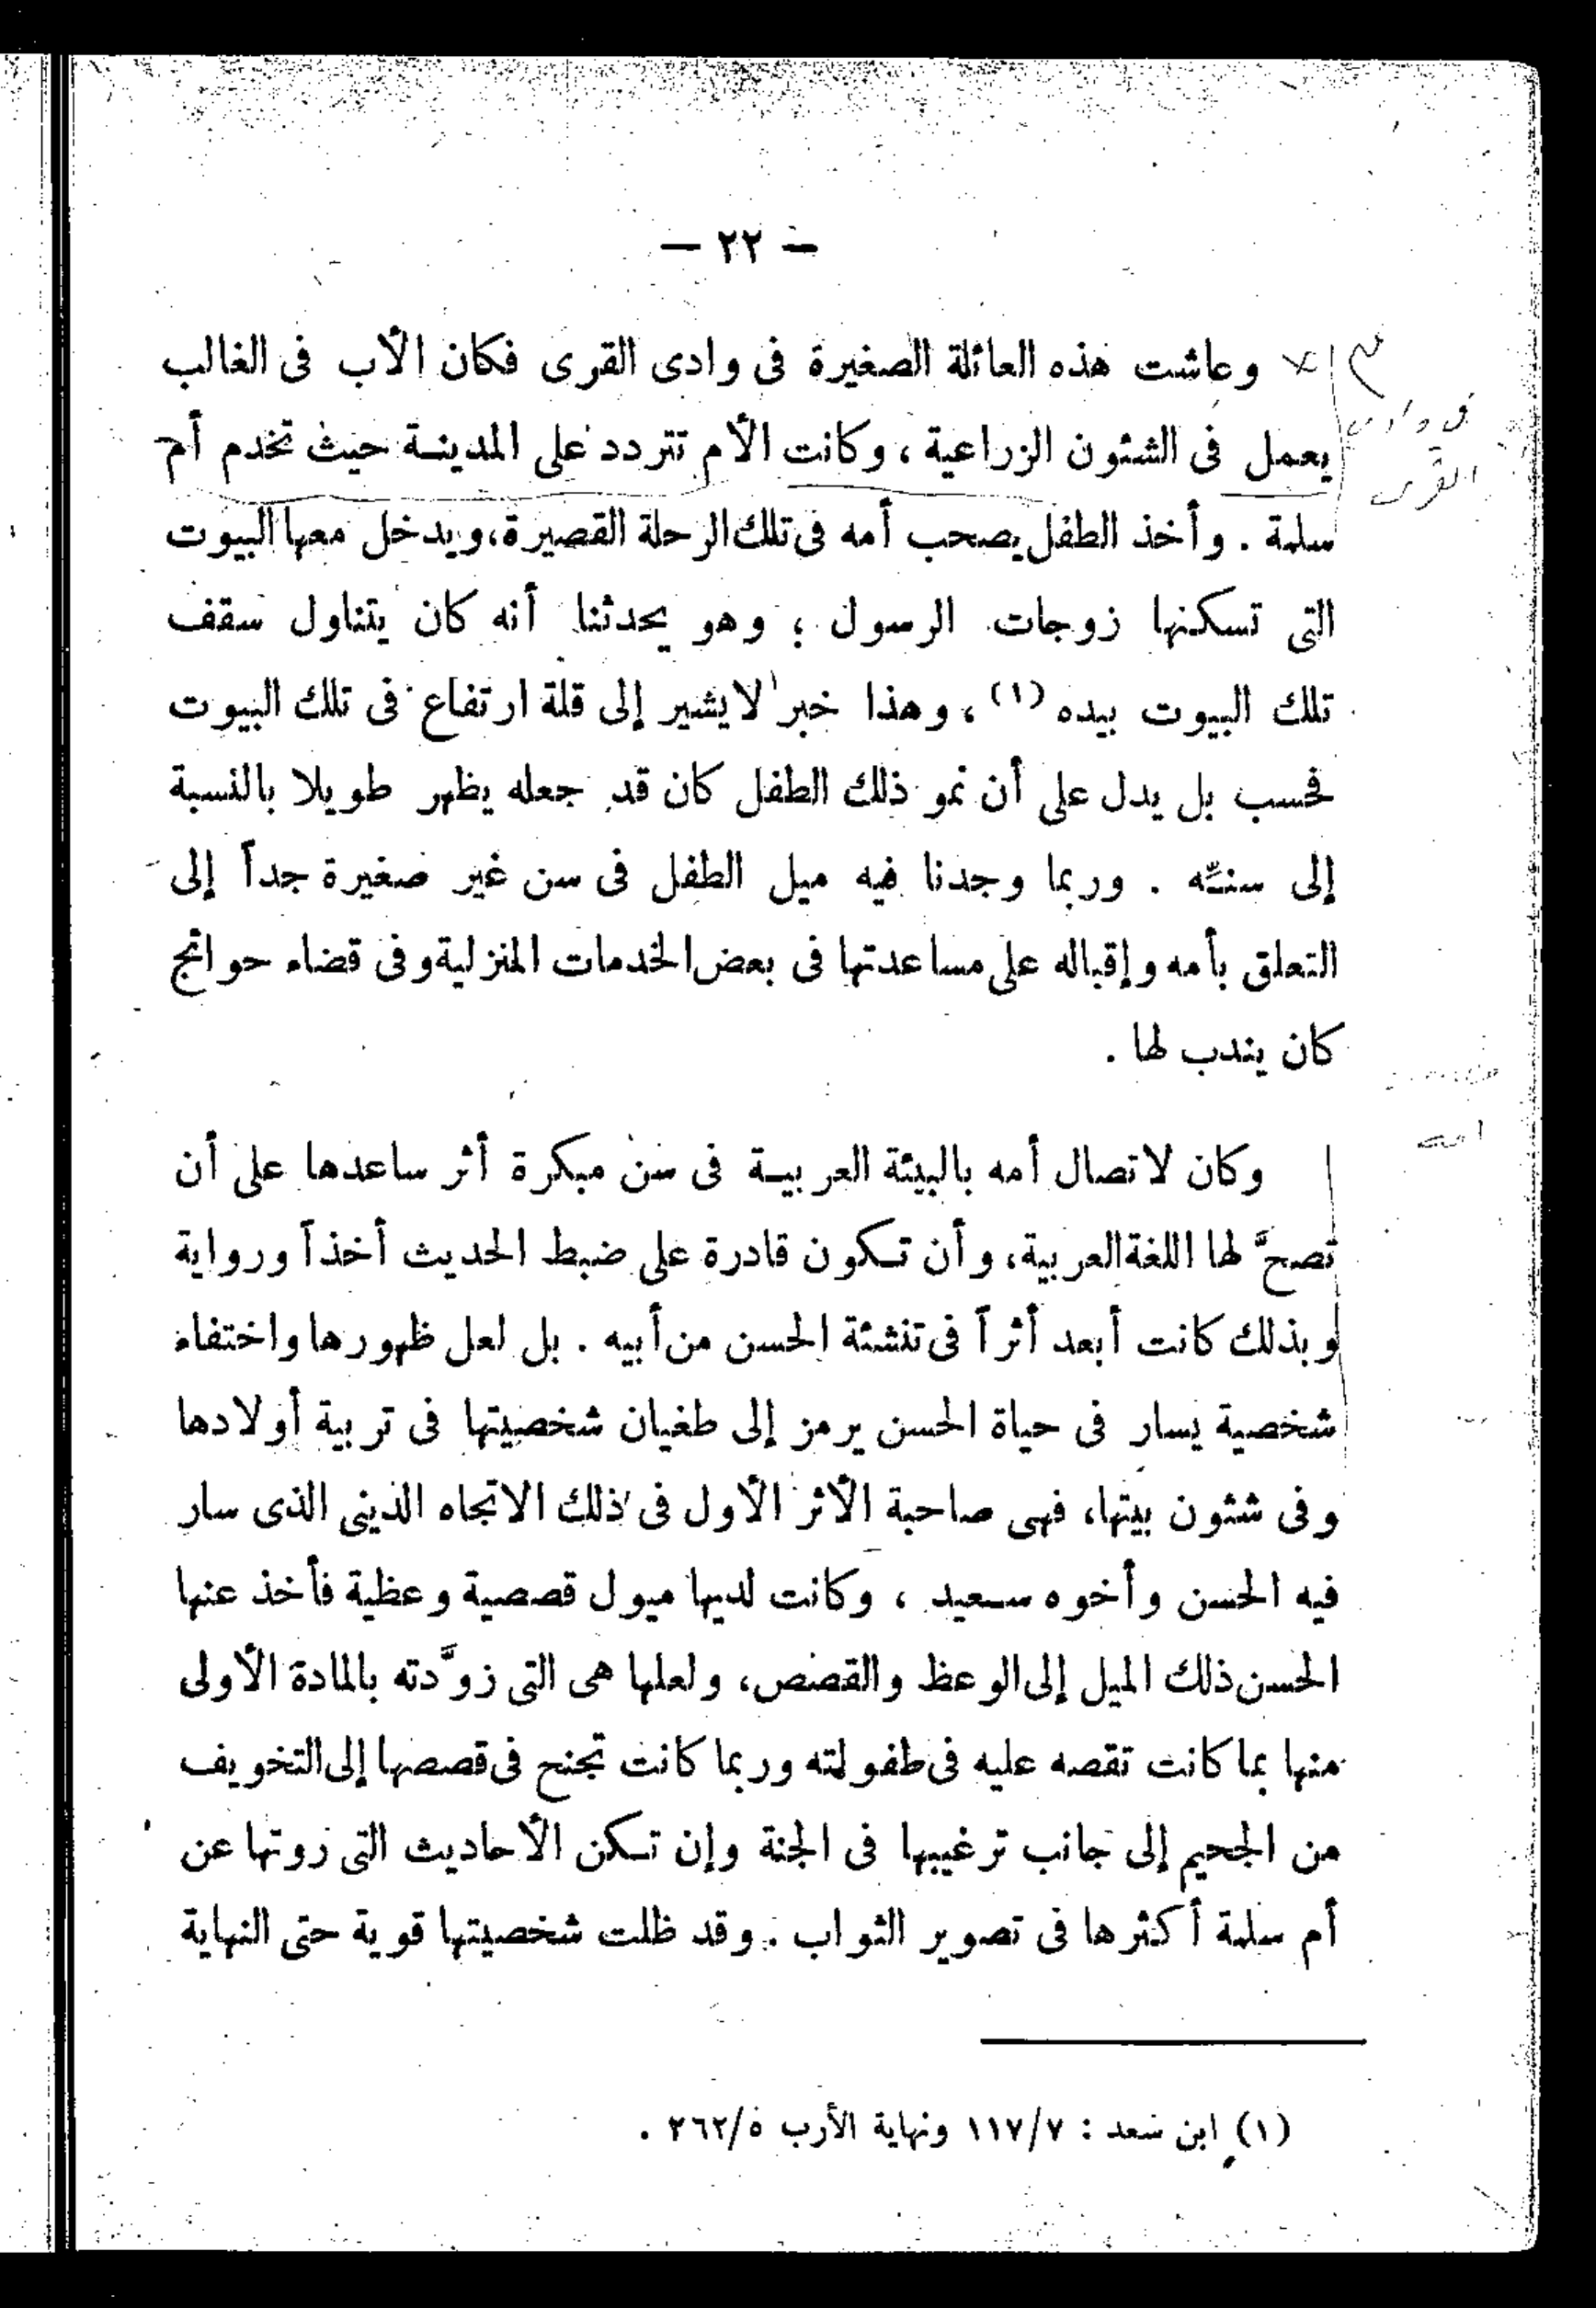 — ٢٢ —
وعاشت هذه العائلة الصغيرة فى وادى القرى فكان الأب فى الغالب
يعمل فى الشئون الزراعية ، وكانت الأم تتردد على المدينة حيث تخدم أم
سلمة . وأخذ الطفل يصحب أمه فى تلك الرحلة القصيرة، ويدخل معها البيوت
التى تسكنها زوجات الرسول ؛ وهو يحدثنا أنه كان يتناول سقف
تلك البيوت بيده (١) ، وهذا خبر لا يشير إلى قلة ارتفاع فى تلك البيوت
فحسب بل يدل على أن نمو ذلك الطفل كان قد جعله يظهر طويلا بالنسبة
إلى سنّه . وربما وجدنا فيه ميل الطفل فى سن غير صغيرة جداً إلى
التعلق بأمه وإقباله على مساعدتها فى بعض الخدمات المنزلية وفى قضاء حوائج
كان يندب لها .
وكان لاتصال أمه بالبيئة العربية فى سن مبكرة أثر ساعدها على أن
تصحَّ لها اللغة العربية، وأن تكون قادرة على ضبط الحديث أخذاً ورواية
وبذلك كانت أبعد أثراً فى تنشئة الحسن من أبيه . بل لعل ظهورها واختفاء
شخصية يسار فى حياة الحسن يرمز إلى طغيان شخصيتها فى تربية أولادها
وفى شئون بيتها، فهى صاحبة الأثر الأول فى ذلك الاتجاه الدينى الذى سار
فيه الحسن وأخوه سعيد ، وكانت لديها ميول قصصية وعظية فأخذ عنها
الحسن ذلك الميل إلى الوعظ والقصص، ولعلها هى التى زوَّدته بالمادة الأولى
منها بما كانت تقصه عليه فى طفولته وربما كانت تجنح فى قصصها إلى التخويف
من الجحيم إلى جانب ترغيبها فى الجنة وإن تكن الأحاديث التى روتها عن
أم سلمة أكثرها فى تصوير الثواب . وقد ظلت شخصيتها قوية حتى النهاية
(١) ابن سعد : ١١٧/٧ ونهاية الأرب ٣٦٢/٥ .
فى وادى
القرى
امه